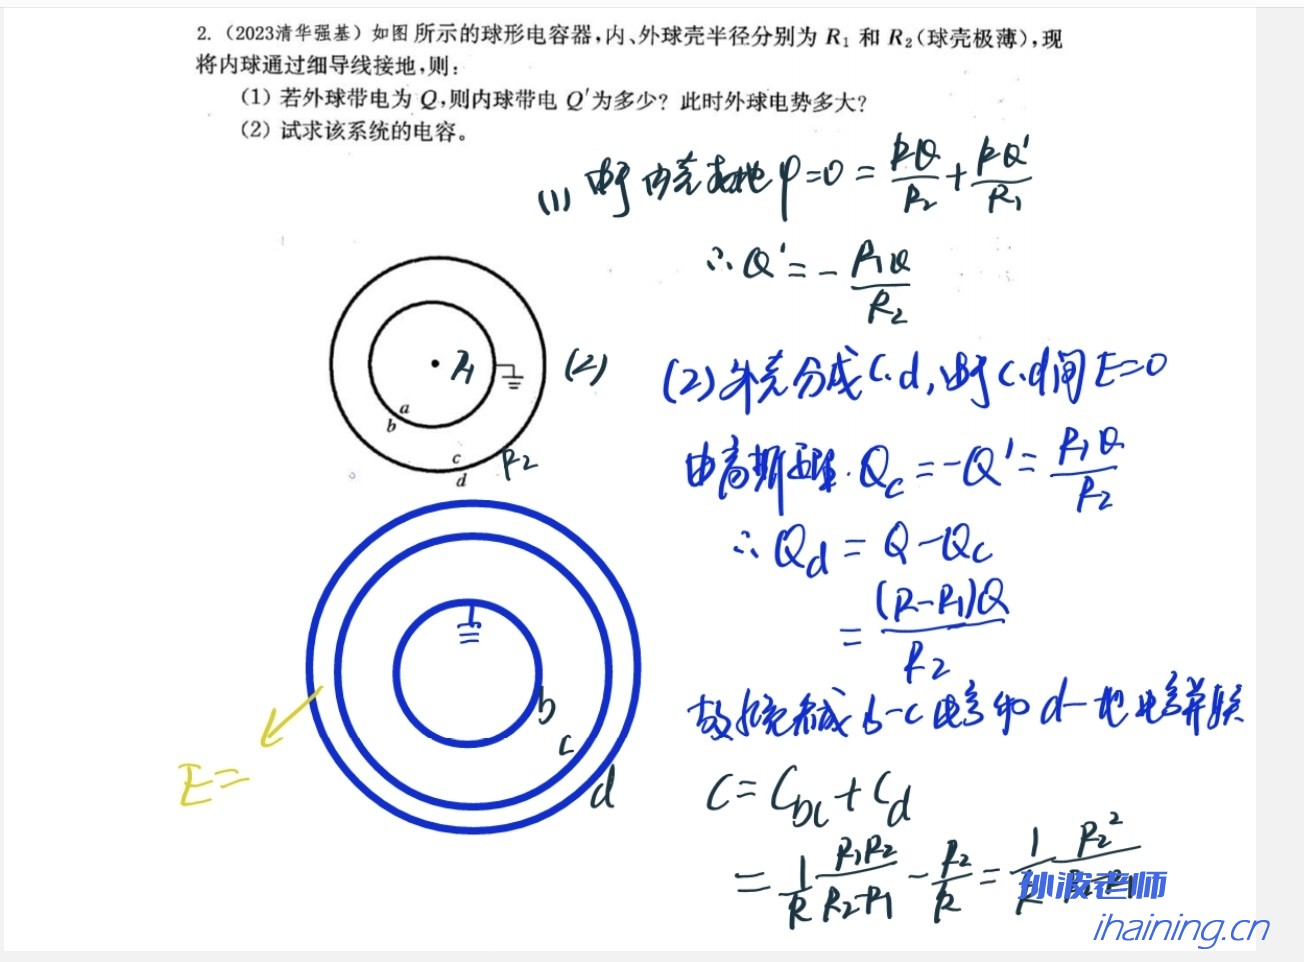 2.（2023清华强基）如图所示的球形电容器，内、外球壳半径分别为 R₁ 和 R₂（球壳极薄），现
将内球通过细导线接地，则：
（1）若外球带电为 Q，则内球带电 Q′为多少？此时外球电势多大？
（2）试求该系统的电容。
(1) 由于内壳接地 φ=0 = kQ/R₂ + kQ′/R₁
∴ Q′ = - R₁Q/R₂
R₁
a
b
c
d
R₂
(2)
(2) 外壳分成 c.d, 由于 c.d间 E=0
由高斯定理. Q_c = -Q′ = R₁Q/R₂
∴ Q_d = Q - Q_c
= (R-R₁)Q/R₂
b-c 电容和 d-地电容并联
b
c
d
E=
C = C_bc + C_d
= 1/k R₁R₂/(R₂-R₁) - R₂/k = 1/k R₂²/(R₂-R₁)
孙波老师
ihaining.cn